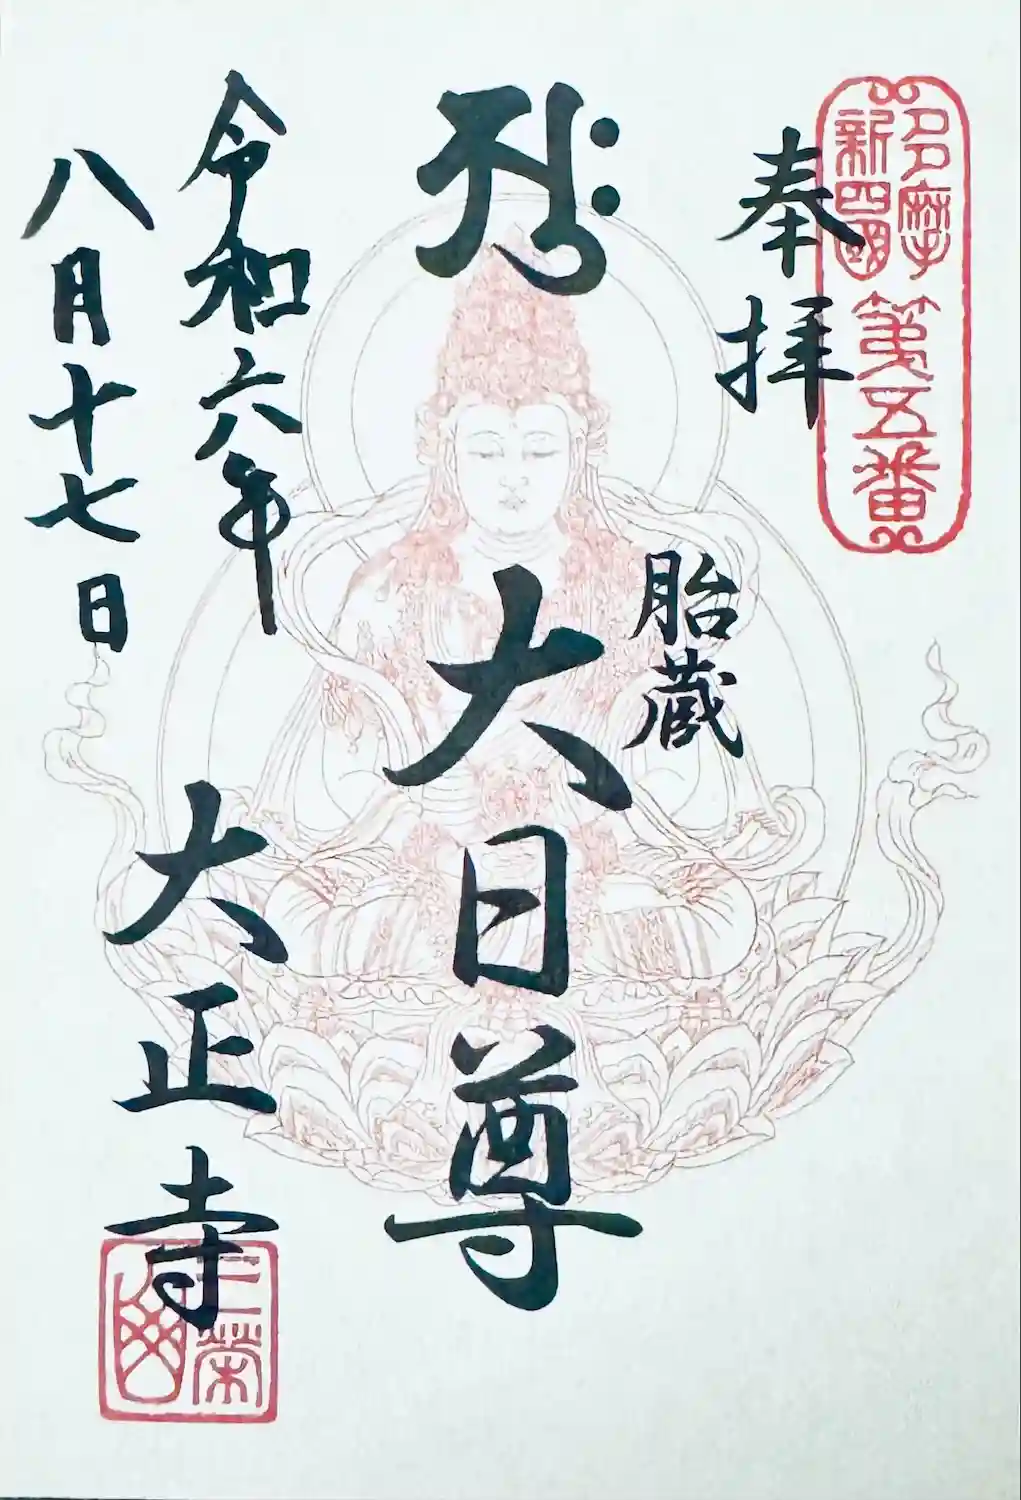 多摩
新四國
第五番
奉拝
胎蔵
大日尊
令和六年
八月十七日
大正寺
三榮